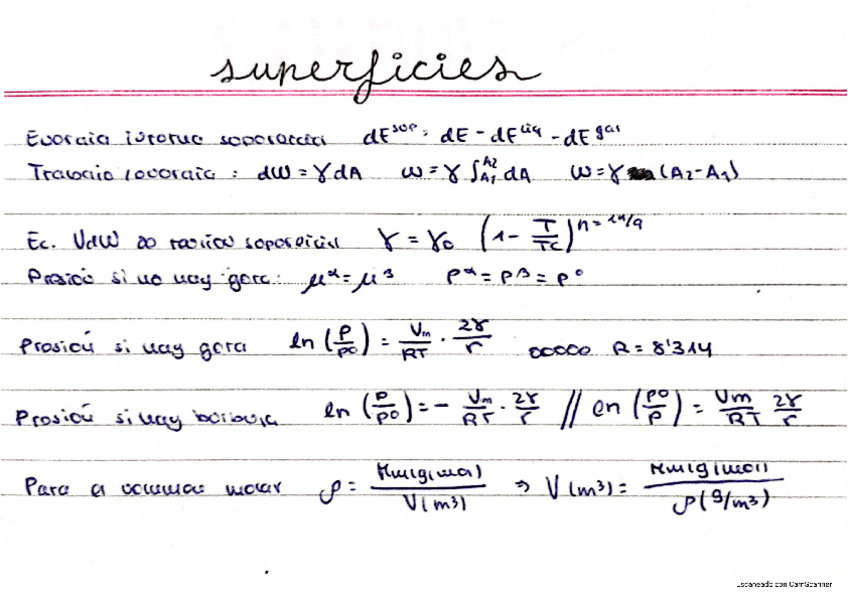 superficies
Energía interna superficial dE^sup = dE - dE^liq - dE^gas
Trabajo : dW = γ dA W = γ ∫_A1^A2 dA W = γ (A2 - A1)
Ec. VdW de tensión superficial γ = γ0 (1 - T/Tc)^n = 11/9
Presión si no hay gota: μ^α = μ^β P^α = P^β = P^0
Presión si hay gota ln (P/P0) = Vm/RT · 2γ/r R = 8'314
Presión si hay burbuja ln (P/P0) = - Vm/RT · 2γ/r // ln (P0/P) = Vm/RT 2γ/r
Para el volumen molar ρ = Mm(g/mol)/V(m³) ⇒ V(m³) = Mm(g/mol)/ρ(g/m³)
Escaneado con CamScanner